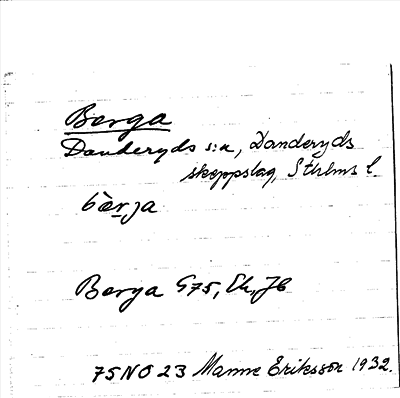 Berga
Danderyds s:n, Danderyds
skeppslag, Sthlms l.
bæ̀rja
Berga G75, Ek, Jb
75 NO 23 Manne Eriksson 1932.